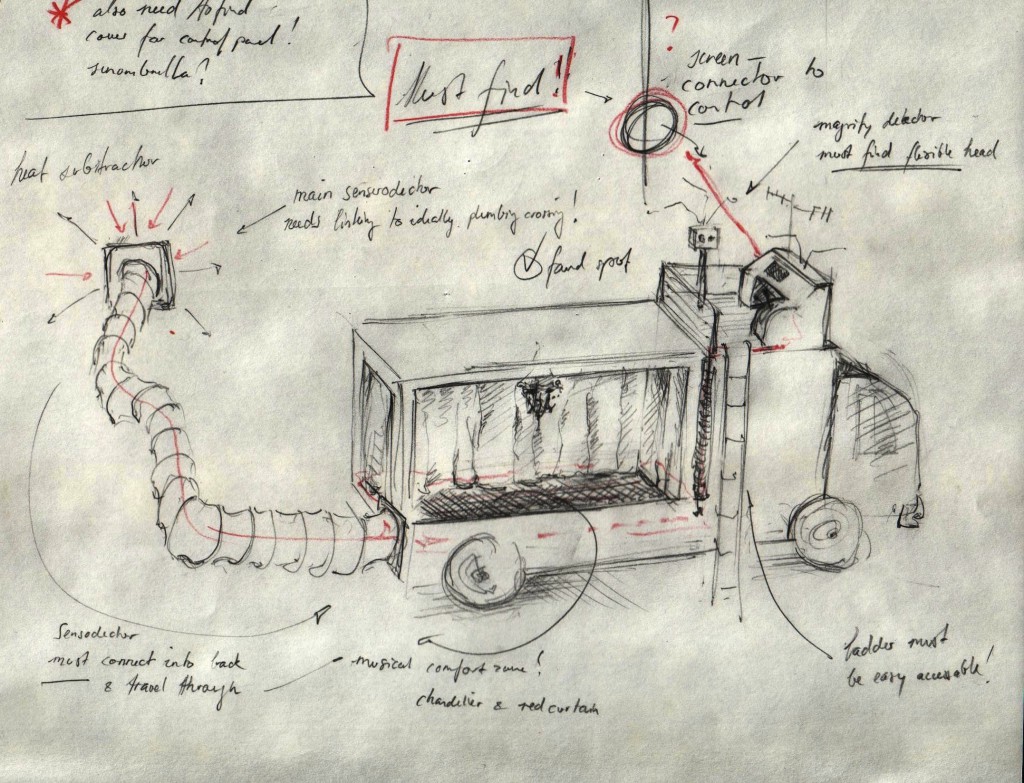 also need to find
cover for control panel!
Must find!
?
screen -
connector to
control
magnify detector
must find flexible head
heat subttractor
main senserodector
needs linking to ideally plumbing crossing!
found spot
Sensodector
must connect into back
& travel through
- musical comfort zone!
chandelier & red curtain
ladder must
be easy accessable!